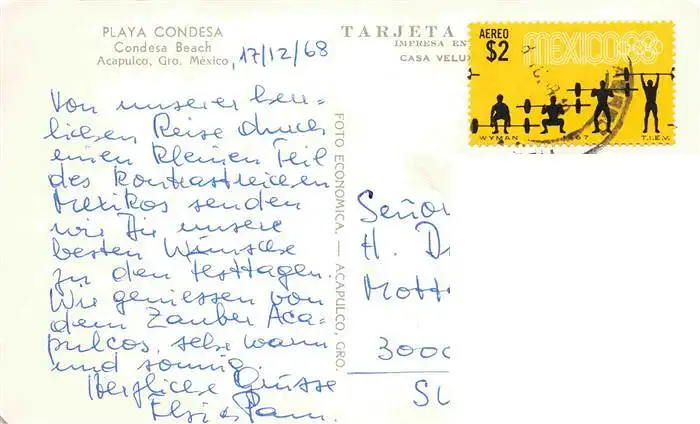 PLAYA CONDESA
Condesa Beach
Acapulco, Gro. México
, 17/12/68
TARJETA
IMPRESA EN
CASA VELU
AEREO
$2
MEXICO68
WYMAN
1967
T.I.E.V.
Von unserer herr=
lichen Reise durch
einen kleinen Teil
des kontrastreichen
Mexikos senden
wir Dir unsere
besten Wünsche
zu den Festtagen.
Wir geniessen von
dem Zauber Aca=
pulcos, sehr warm
und sonnig.
Herzliche Grüsse
Elsi &
FOTO ECONOMICA. — ACAPULCO, GRO.
Señor
H. D
Mott
3000
SU